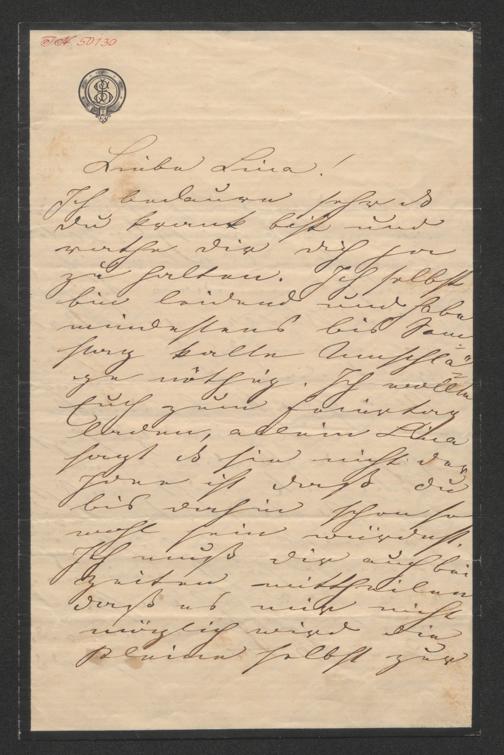 J.N. 50130
Liebe Lina!
Ich bedaure sehr dß
du krank bist und
rathe dir dich ja
zu halten. Ich selbst
bin leidend und habe
mindestens bis Sam
stag kalte Umschlä
ge nöthig. Ich wollte
Euch zum Feiertag
laden, allein Lina
sagt dß sie nicht der
Idee ist daß du
bis dahin schon so
wohl sein würdest.
Ich muß dir auch bei
Zeiten mittheilen
daß es mir nicht
möglich wird die
Kleine selbst zur